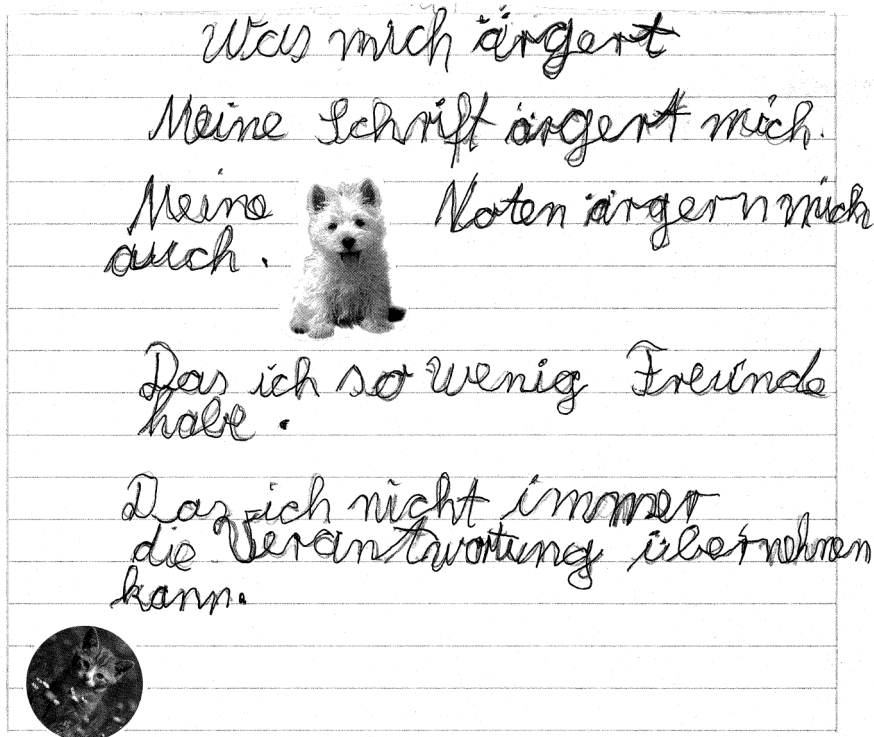 Was mich ärgert
Meine Schrift ärgert mich.
Meine Noten ärgern mich
auch.
Das ich so wenig Freunde
habe.
Das ich nicht immer
die Verantwortung übernehmen
kann.